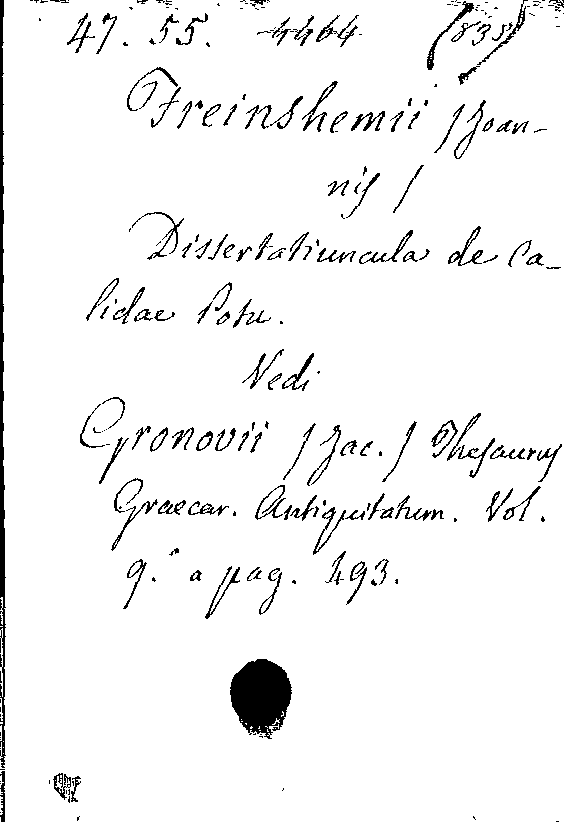 47. 55. 4464 (838)
Freinshemii / Joan-
nis /
Dissertatiuncula de Ca-
lidae Potu.
Vedi
Gronovii / Jac. / Thesaurus
Graecar. Antiquitatum. Vol.
9.° a pag. 493.